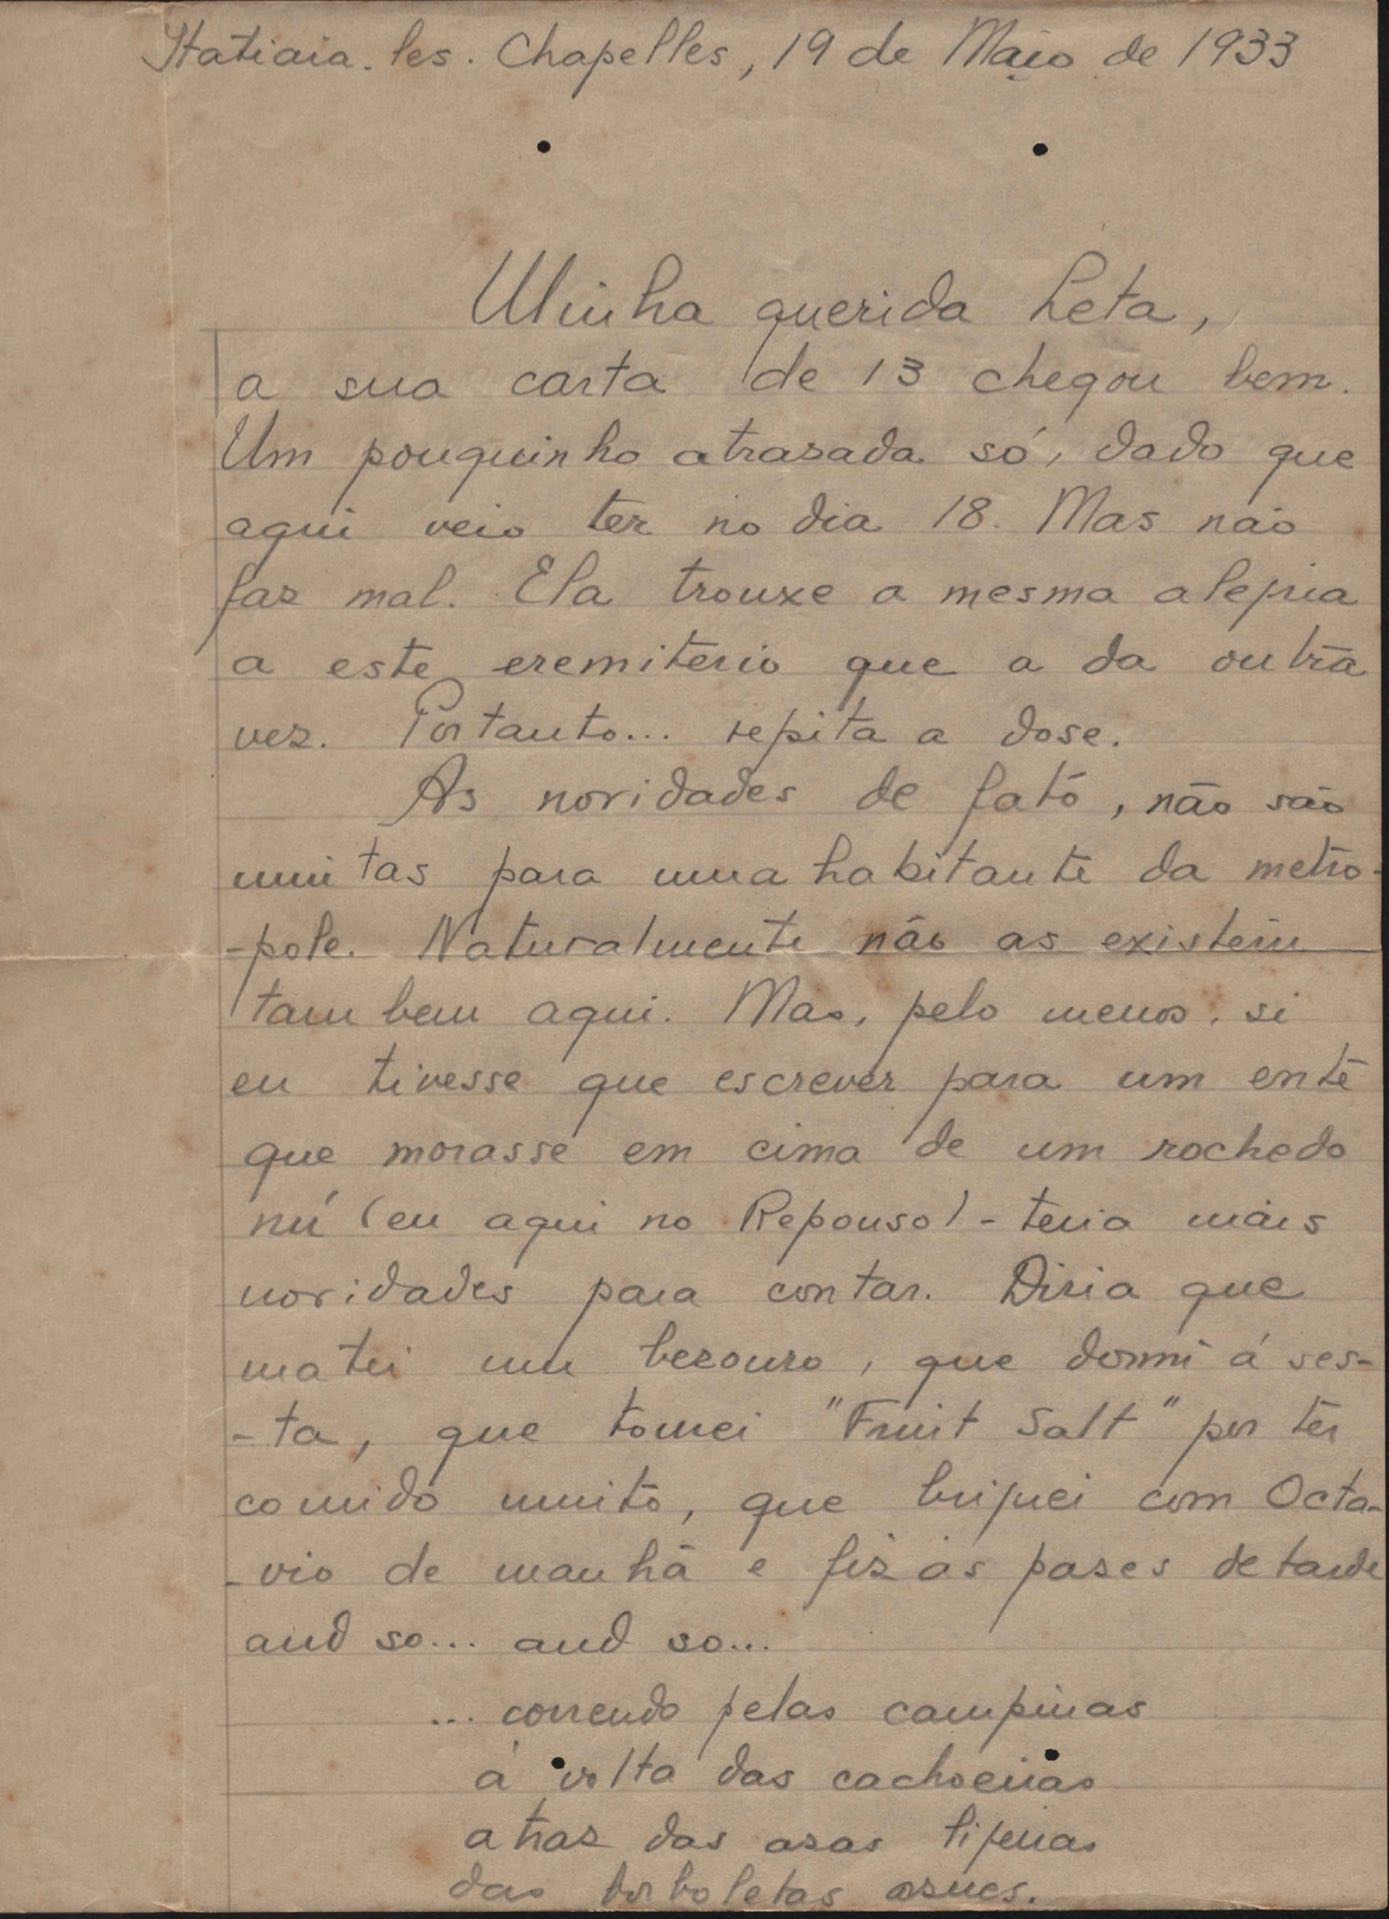 Itatiaia. les. Chapelles, 19 de Maio de 1933
Minha querida Leta,
a sua carta de 13 chegou bem.
Um pouquinho atrasada só, dado que
aqui veio ter no dia 18. Mas não
faz mal. Ela trouxe a mesma alegria
a este eremiterio que a da outra
vez. Portanto... repita a dose.
As novidades de fato, não são
muitas para uma habitante da metro-
-pole. Naturalmente não as existem
tambem aqui. Mas, pelo menos, si
eu tivesse que escrever para um ente
que morasse em cima de um rochedo
nú (eu aqui no Repouso) - teria mais
novidades para contar. Diria que
matei um bezouro, que dormi á ses-
-ta, que tomei "Fruit Salt" por ter
comido muito, que briguei com Octa-
-vio de manhã e fiz as pazes de tarde
and so... and so...
... correndo pelas campinas
á volta das cachoeiras
atraz das azas ligeiras
das borboletas azues.